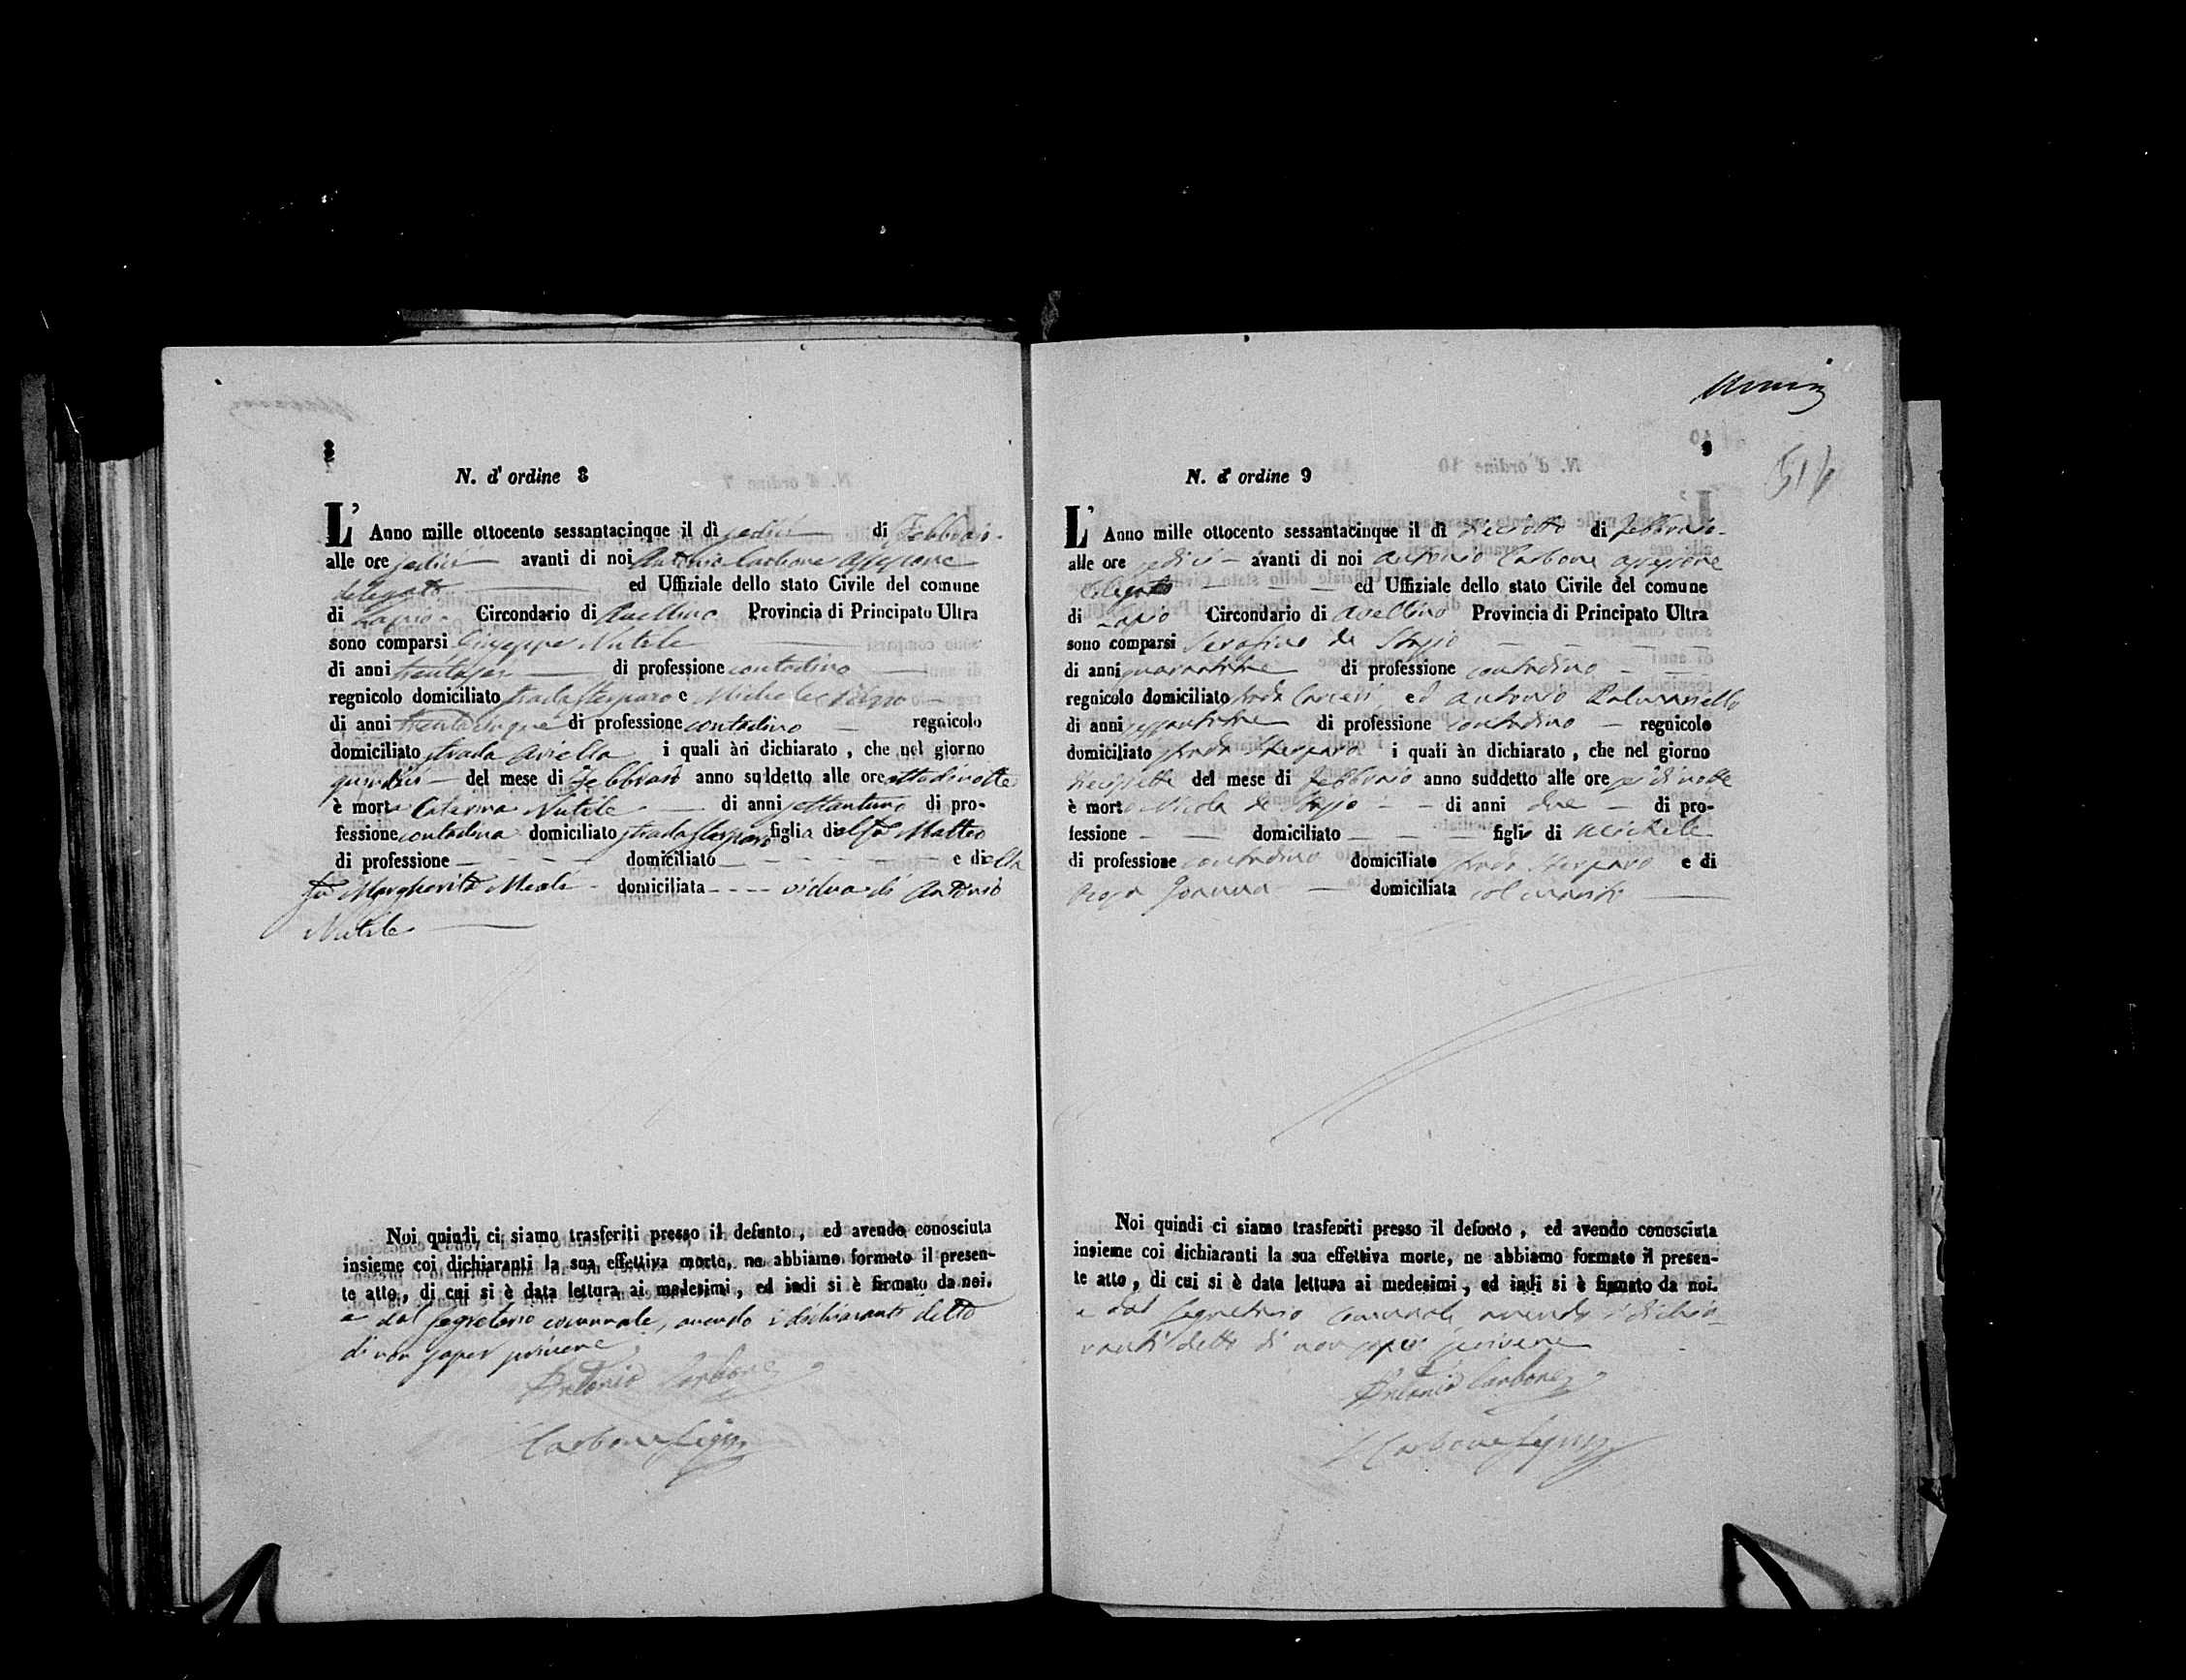 8
N. d' ordine 8
L' Anno mille ottocento sessantacinque il dì sedici di Febbraio
alle ore sedici avanti di noi Antonio Carbone assessore
delegato ed Uffiziale dello stato Civile del comune
di Lapio Circondario di Avellino Provincia di Principato Ultra
sono comparsi Giuseppe Nutile
di anni di professione contadino
regnicolo domiciliato strada e Michele
di anni trentacinque di professione contadino regnicolo
domiciliato strada i quali àn dichiarato, che nel giorno
quindici del mese di Febbraio anno suddetto alle ore otto di notte
è morta Caterina Nutile di anni settantuno di pro-
fessione contadina domiciliato strada figlia di Matteo
di professione domiciliato e di
fu Margherita domiciliata vidua di Antonio
Nutile
Noi quindi ci siamo trasferiti presso il defunto, ed avendo conosciuta
insieme coi dichiaranti la sua effettiva morte, ne abbiamo formato il presen-
te atto, di cui si è data lettura ai medesimi, ed indi si è firmato da noi.
e dal segretario comunale, avendo i dichiaranti detto
di non saper scrivere
Antonio Carbone
Carbone Segr
9
N. d' ordine 9
L' Anno mille ottocento sessantacinque il dì diciotto di Febbraio
alle ore sedici avanti di noi Antonio Carbone assessore
delegato ed Uffiziale dello stato Civile del comune
di Lapio Circondario di Avellino Provincia di Principato Ultra
sono comparsi Serafino de
di anni di professione contadino
regnicolo domiciliato strada Carceri ed Antonio
di anni di professione contadino regnicolo
domiciliato strada i quali àn dichiarato, che nel giorno
diecisette del mese di Febbraio anno suddetto alle ore sei di notte
è morto Nicola de di anni due di pro-
fessione domiciliato figlio di Michele
di professione contadino domiciliato strada e di
domiciliata col marito
Noi quindi ci siamo trasferiti presso il defonto, ed avendo conosciuta
insieme coi dichiaranti la sua effettiva morte, ne abbiamo formato il presen-
te atto, di cui si è data lettura ai medesimi, ed indi si è firmato da noi.
e dal segretario comunale, avendo i dichia-
ranti detto di non saper scrivere
Antonio Carbone
Carbone Segr